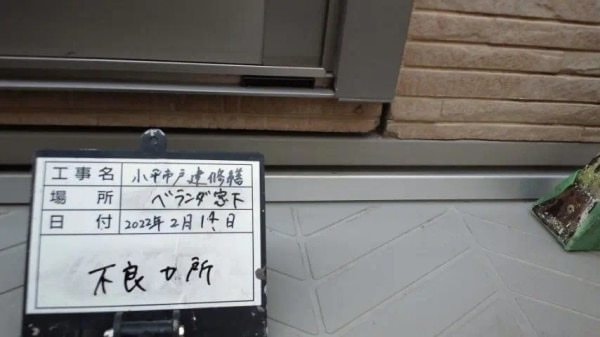 工事名 小平市戸建修繕
場所 ベランダ窓下
日付 2022年2月14日
不良カ所